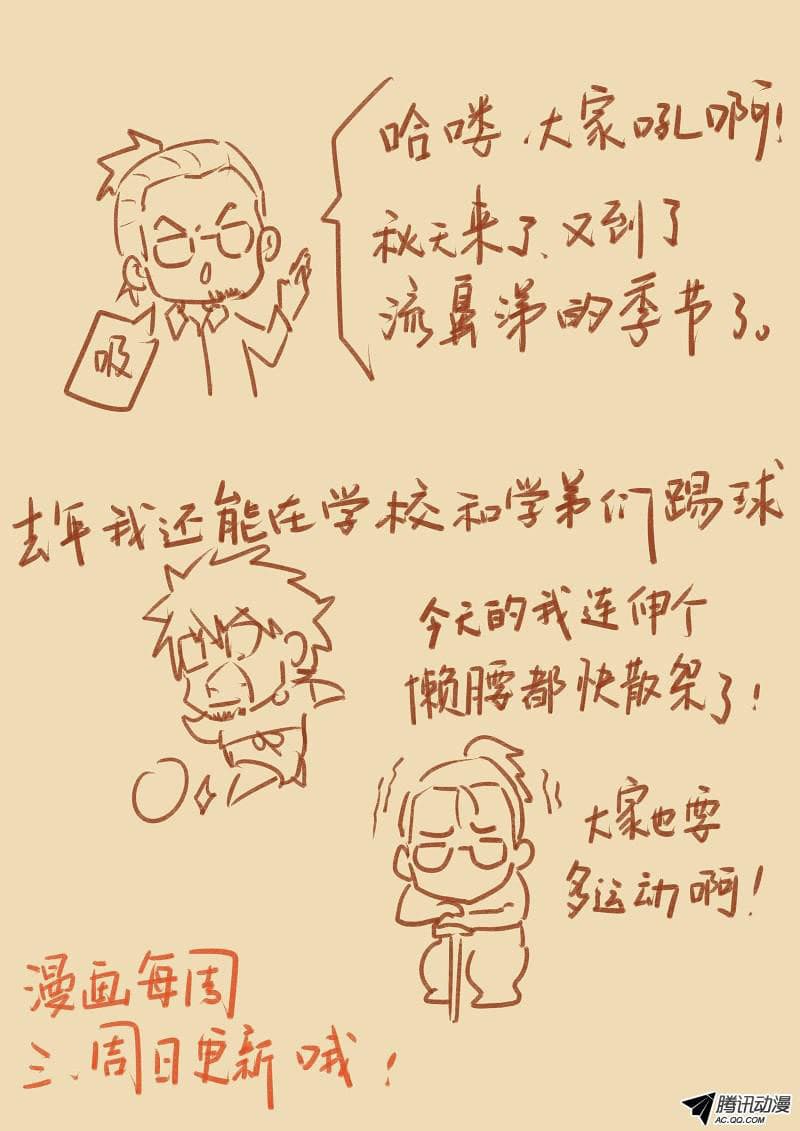 哈喽 大家吼啊!
秋天来了、又到了
流鼻涕的季节了。
吸
去年我还能在学校和学弟们踢球
今天的我连伸个
懒腰都快散架了!
大家也要
多运动啊!
漫画每周
三、周日更新哦!
腾讯动漫
AC.QQ.COM